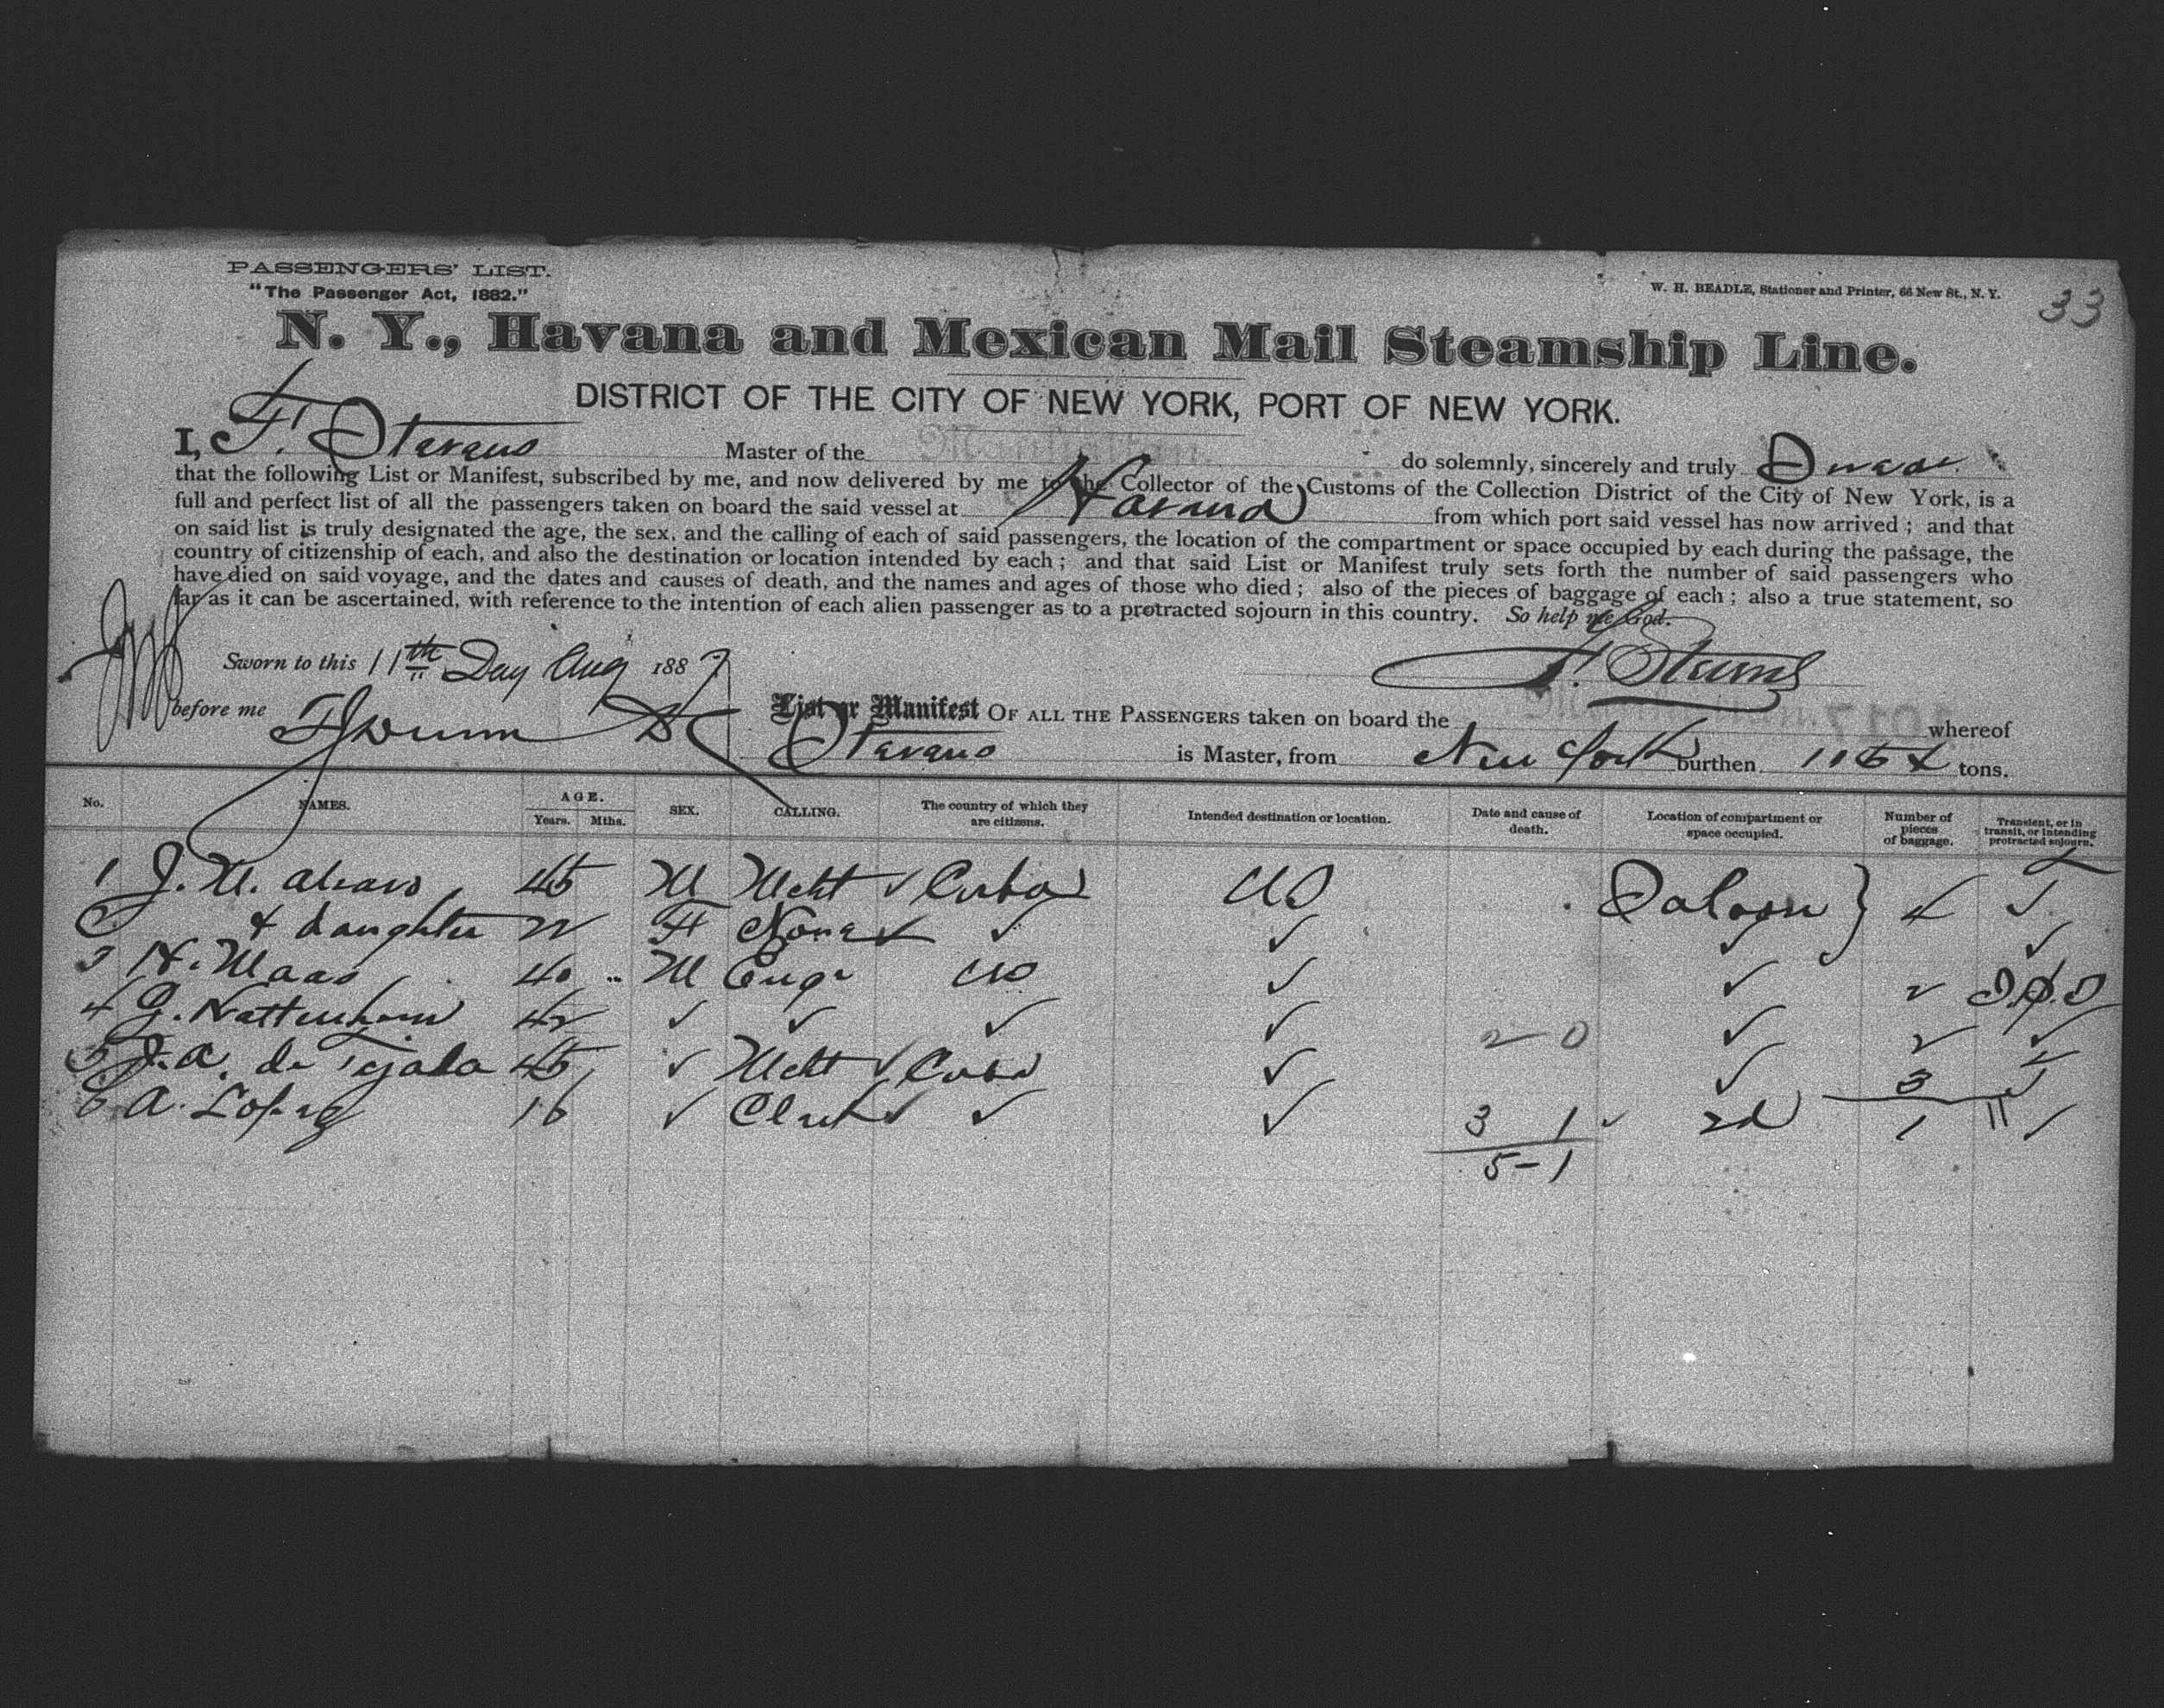 PASSENGERS' LIST.
"The Passenger Act, 1882."
W. H. BEADLE, Stationer and Printer, 66 New St., N. Y.
33
N. Y., Havana and Mexican Mail Steamship Line.
DISTRICT OF THE CITY OF NEW YORK, PORT OF NEW YORK.
I, F. Stevens Master of the Manhattan do solemnly, sincerely and truly Swear
that the following List or Manifest, subscribed by me, and now delivered by me to the Collector of the Customs of the Collection District of the City of New York, is a
full and perfect list of all the passengers taken on board the said vessel at Havana from which port said vessel has now arrived; and that
on said list is truly designated the age, the sex, and the calling of each of said passengers, the location of the compartment or space occupied by each during the passage, the
country of citizenship of each, and also the destination or location intended by each; and that said List or Manifest truly sets forth the number of said passengers who
have died on said voyage, and the dates and causes of death, and the names and ages of those who died; also of the pieces of baggage of each; also a true statement, so
far as it can be ascertained, with reference to the intention of each alien passenger as to a protracted sojourn in this country. So help me God.
Sworn to this 11th Day Aug 1887
F. Stevens
before me
List or Manifest OF ALL THE PASSENGERS taken on board the whereof
Stevens is Master, from New York burthen tons.
No. NAMES. AGE. Years. Mths. SEX. CALLING. The country of which they are citizens. Intended destination or location. Date and cause of death. Location of compartment or space occupied. Number of pieces of baggage. Transient, or in transit, or intending protracted sojourn.
1 J. M. 45 M Mcht ✓ Cuba US Saloon } 4 T
& daughter 22 F None ✓ ✓ ✓ ✓ ✓
3 H. Maas 40 " M Engr US ✓ ✓ 2
4 G. 42 ✓ ✓ ✓ ✓ 2-0 ✓ 2 ✓
5 J. A. de Tejada 45 ✓ Mcht ✓ Cuba ✓ ✓ 3 T
6 A. Lopez 16 ✓ Clerk ✓ ✓ ✓ 3 1 ✓ 2d 1 " ✓
5-1